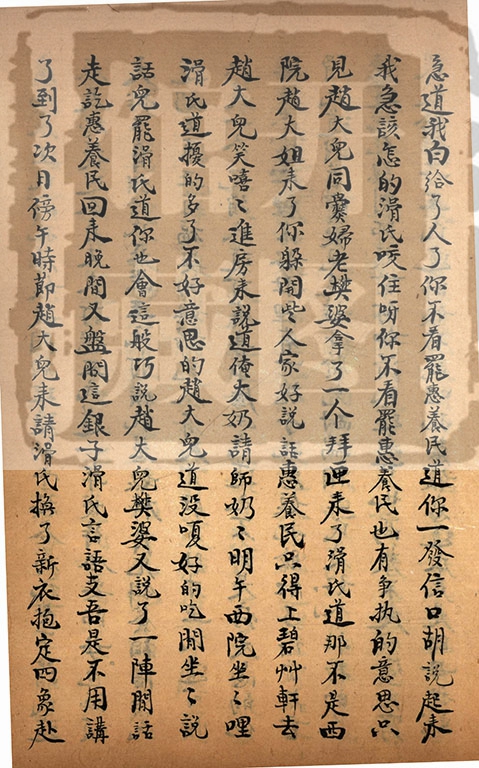 急道我白給了人了你不看罷惠養民道你一發信口胡說起来
我急該怎的滑氏咬住呀你不看罷惠養民也有争执的意思只
見趙大兒同爨婦老樊婆拿了一个拜匣来了滑氏道那不是西
院趙大姐来了你躲開些人家好説話惠養民只得上碧艸軒去
趙大兒笑嘻〻進房来說道俺大奶請師奶〻明午西院坐〻哩
滑氏道擾的多了不好意思的趙大兒道没嗄好的吃閒坐〻説
話兒罷滑氏道你也會這般巧説趙大兒樊婆又説了一陣閒話
走訖惠養民回来晚間又盤問這銀子滑氏言語支吾是不用講
了到了次日傍午時節趙大兒来請滑氏換了新衣抱定四象赴